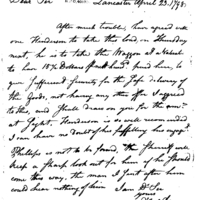 Dear Sir Lancaster April 23. 1768.
After much trouble, have agreed with
one Henderson to take this load, on Thursday
next, he is to take the Waggon at
to have 18 Dollars paid here, to
your Security for the Safe delivery of
the Goods, not having any other I agreed
to this, and shall on you for the
Henderson is so well recommended
I can have no doubt of his fulfilling his engag.t
Phillips is not to be found, the Sheriff will
keep a Sharp look out for him if he should
come this way. the man I sent after him
could hear nothing of him I am D.r Sir
yours